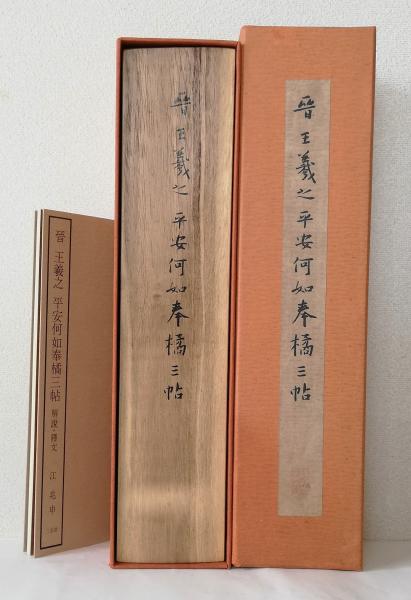 晉王羲之平安何如奉橘三帖
晉王羲之平安何如奉橘三帖
晉 王羲之 平安何如奉橘三帖 解說·釋文 江兆申